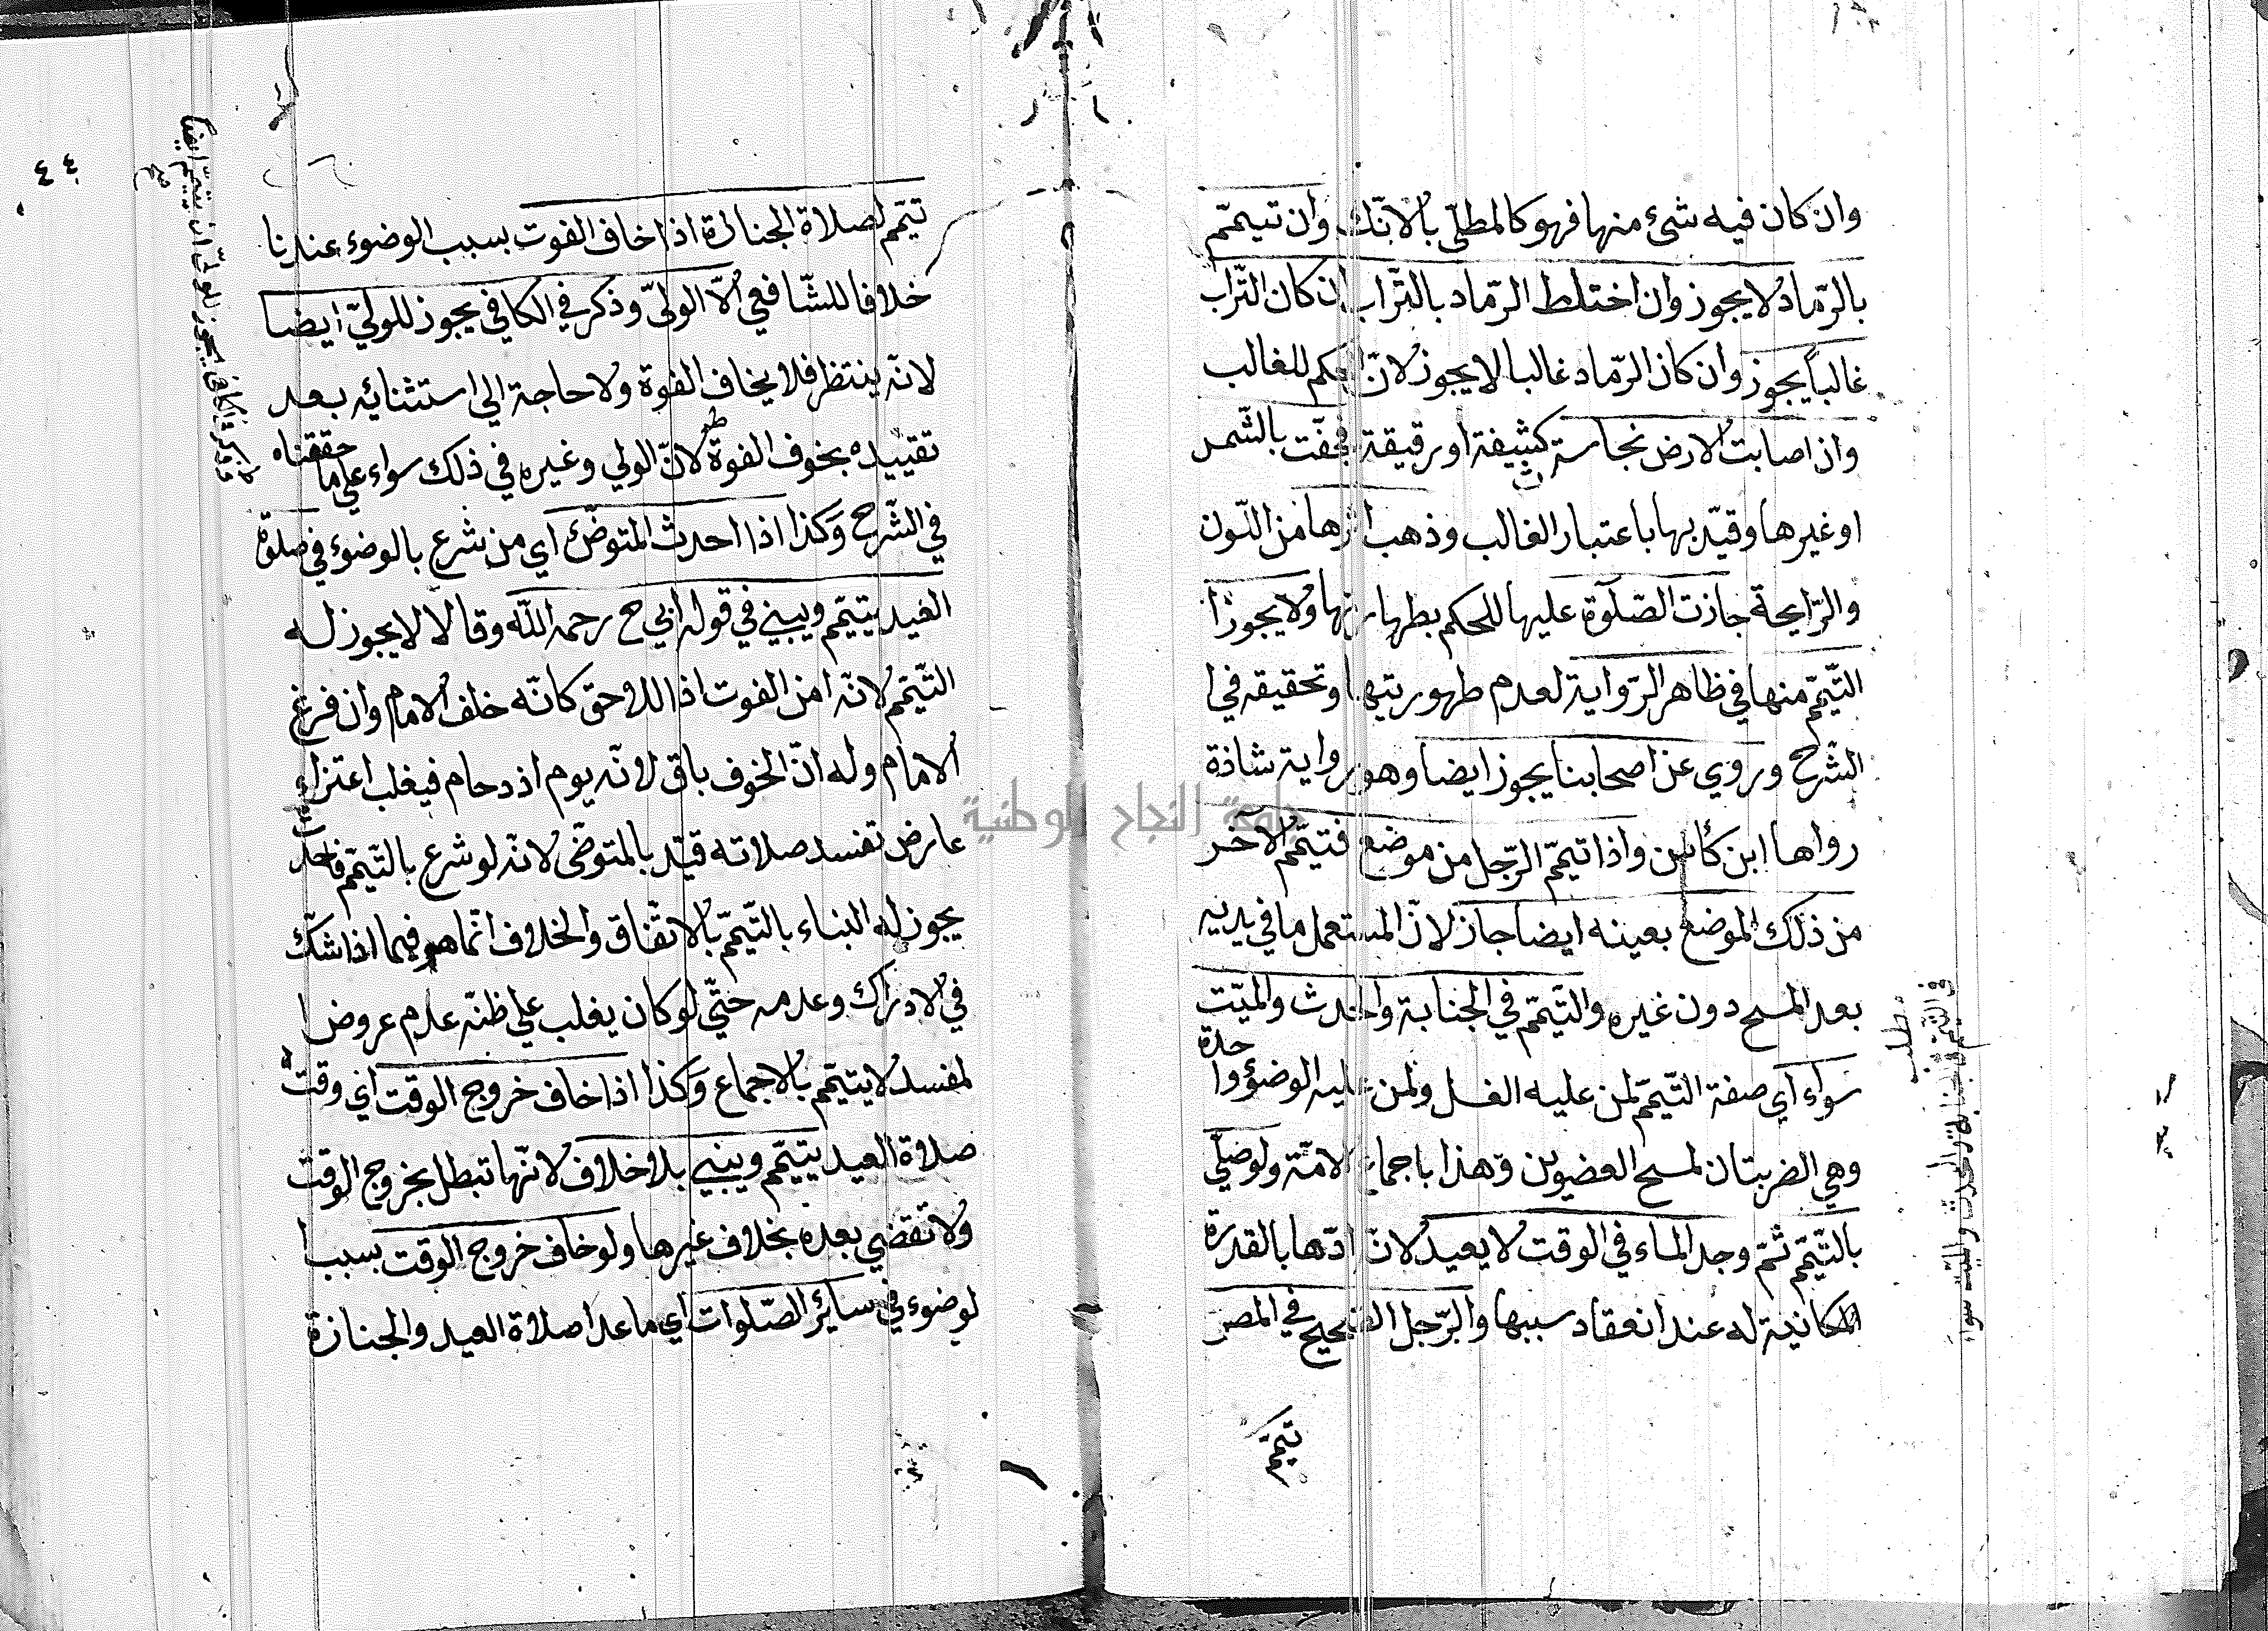 وان كان فيه شئ منها فهو كالمطلي بالانك وان تيمم
بالرماد لا يجوز وان اختلط الرماد بالتراب ان كان التراب
غالبا يجوز وان كان الرماد غالبا لا يجوز لان الحكم للغالب
واذا اصابت الارض نجاسة كثيفة او رقيقة فجفت بالشمس
او غيرها وقيد بها باعتبار الغالب وذهب اثرها من اللون
والرايحة جازت الصلوة عليها للحكم بطهارتها ولا يجوز
التيمم منها في ظاهر الرواية لعدم طهوريتها وتحقيقه في
الشرح وروي عن اصحابنا يجوز ايضا وهو رواية شاذة
رواها ابن كأس واذا تيمم الرجل من موضع فتيمم الآخر
من ذلك الموضع بعينه ايضا جاز لان المستعمل ما في يديه
بعد المسح دون غيره والتيمم في الجنابة والحدث والميت
سواء اي صفة التيمم لمن عليه الغسل ولمن عليه الوضوء واحدة
وهي الضربتان لمسح العضوين وهذا باجماع الامة ولو صلي
بالتيمم ثم وجد الماء في الوقت لا يعيد لانه ادها بالقدرة
المكانية له عند انعقاد سببها والرجل الصحيح في المصر
تيمم
مطلب
في التيمم في الجنابة والحدث والميت سواء
٤٤
تيمم لصلاة الجنازة اذا خاف الفوت بسبب الوضوء عندنا
خلافا للشافعي الا الولي وذكر في الكافي يجوز للولي ايضا
لانه ينتظر فلا يخاف الفوة ولا حاجة الي استثنائه بعد
تقييده بخوف الفوة لان الولي وغيره في ذلك سواء علي ما حققناه
في الشرح وكذا اذا احدث المتوضئ اي من شرع بالوضوء في صلوة
العيد يتيمم ويبني في قول ابي ح رحمه الله وقالا لا يجوز له
التيمم لانه امن الفوت اذ اللاحق كانه خلف الامام وان فرغ
الامام وله ان الخوف باق لانه يوم ازدحام فيغلب اعتراء
عارض تفسد صلاته قيد بالمتوضى لانه لو شرع بالتيمم فاحدث
يجوز له البناء بالتيمم بالاتفاق والخلاف انما هو فيما اذا شك
في الادراك وعدمه حتي لو كان يغلب علي ظنه عدم عروض ا
لمفسد لا يتيمم بالاجماع وكذا اذا خاف خروج الوقت اي وقت
صلاة العيد يتيمم ويبني بلا خلاف لانها تبطل بخروج الوقت
ولا تقضي بعده بخلاف غيرها ولو خاف خروج الوقت بسبب ا
لوضوء في سائر الصلوات اي ما عدا صلاة العيد والجنازة
وذكر في الكافي يجوز للولي ان يتيمم ايضا
صح
جامعة النجاح الوطنية